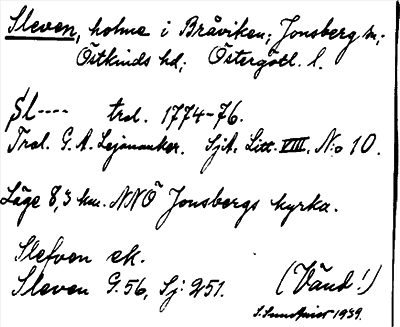 Sleven, holme i Bråviken; Jonsberg sn;
Östkinds hd; Östergötl. l.
Sl---- trol. 1774-76.
Trol. G. A. Lejonanker. SjA. Litt. VIII. No 10.
Läge 8,3 km. NNÖ Jonsbergs kyrka.
Slefven ek.
Sleven G.56, Sj: 251.
(Vänd!)
S. Sundqvist 1939.